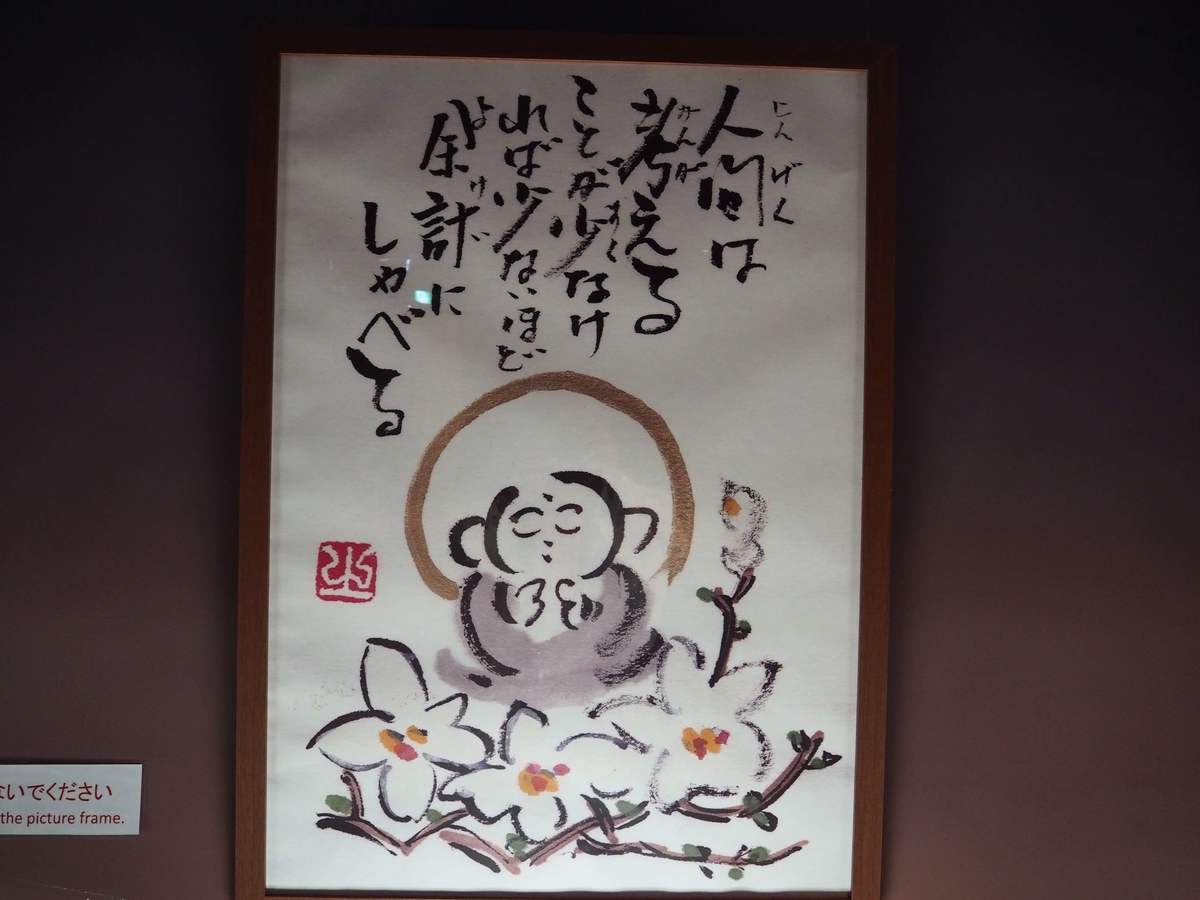 にんげん
人間は
かんが
考える
すく
ことが少なけ
れば少ないほど
よけい
余計に
しゃべる
ないでください
the picture frame.